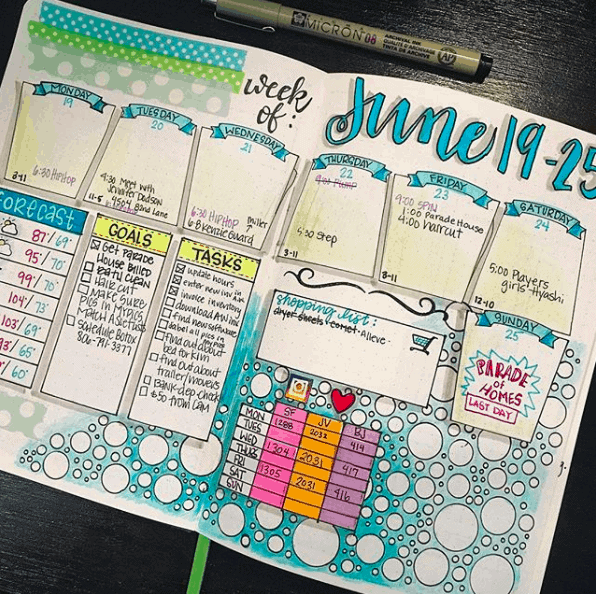 MICRON 08
week
of:
June 19-25
MONDAY
19
6:30 HIPHOP
8-11
TUESDAY
20
4:30 Meet with
Jennifer Dodson
4504 82nd Lane
11-5
WEDNESDAY
21
6:30 HIPHOP
6-8 Kenzie Guard
Miller
THURSDAY
22
9:30 Pump
5:30 Step
3-11
FRIDAY
23
9:00 SPIN
1:00 Parade House
4:00 haircut
8-11
SATURDAY
24
5:00 Players
girls-Hyashi
12-10
SUNDAY
25
PARADE
OF
HOMES
LAST DAY
FORECAST
87/69°
95/70°
99/70°
104/73°
103/69°
93/65°
/60°
GOALS
Get Parade
House Billed
Bath Clean
Hair cut
Make sure
pics in
Match
schedule Botox
806-791-3377
TASKS
update hours
enter new inv in
invoice inventory
download AW inv
find new software
label all pics in
find out about
bed for Kim
find out about
trailer/movers
Bank-dep-check
$50 from Cam
shopping list:
dryer sheets / comet - Alieve -
SF
JV
BJ
MON
TUES
WED
THUR
FRI
SAT
SUN
1288
2032
414
1304
2031
417
1305
2031
416